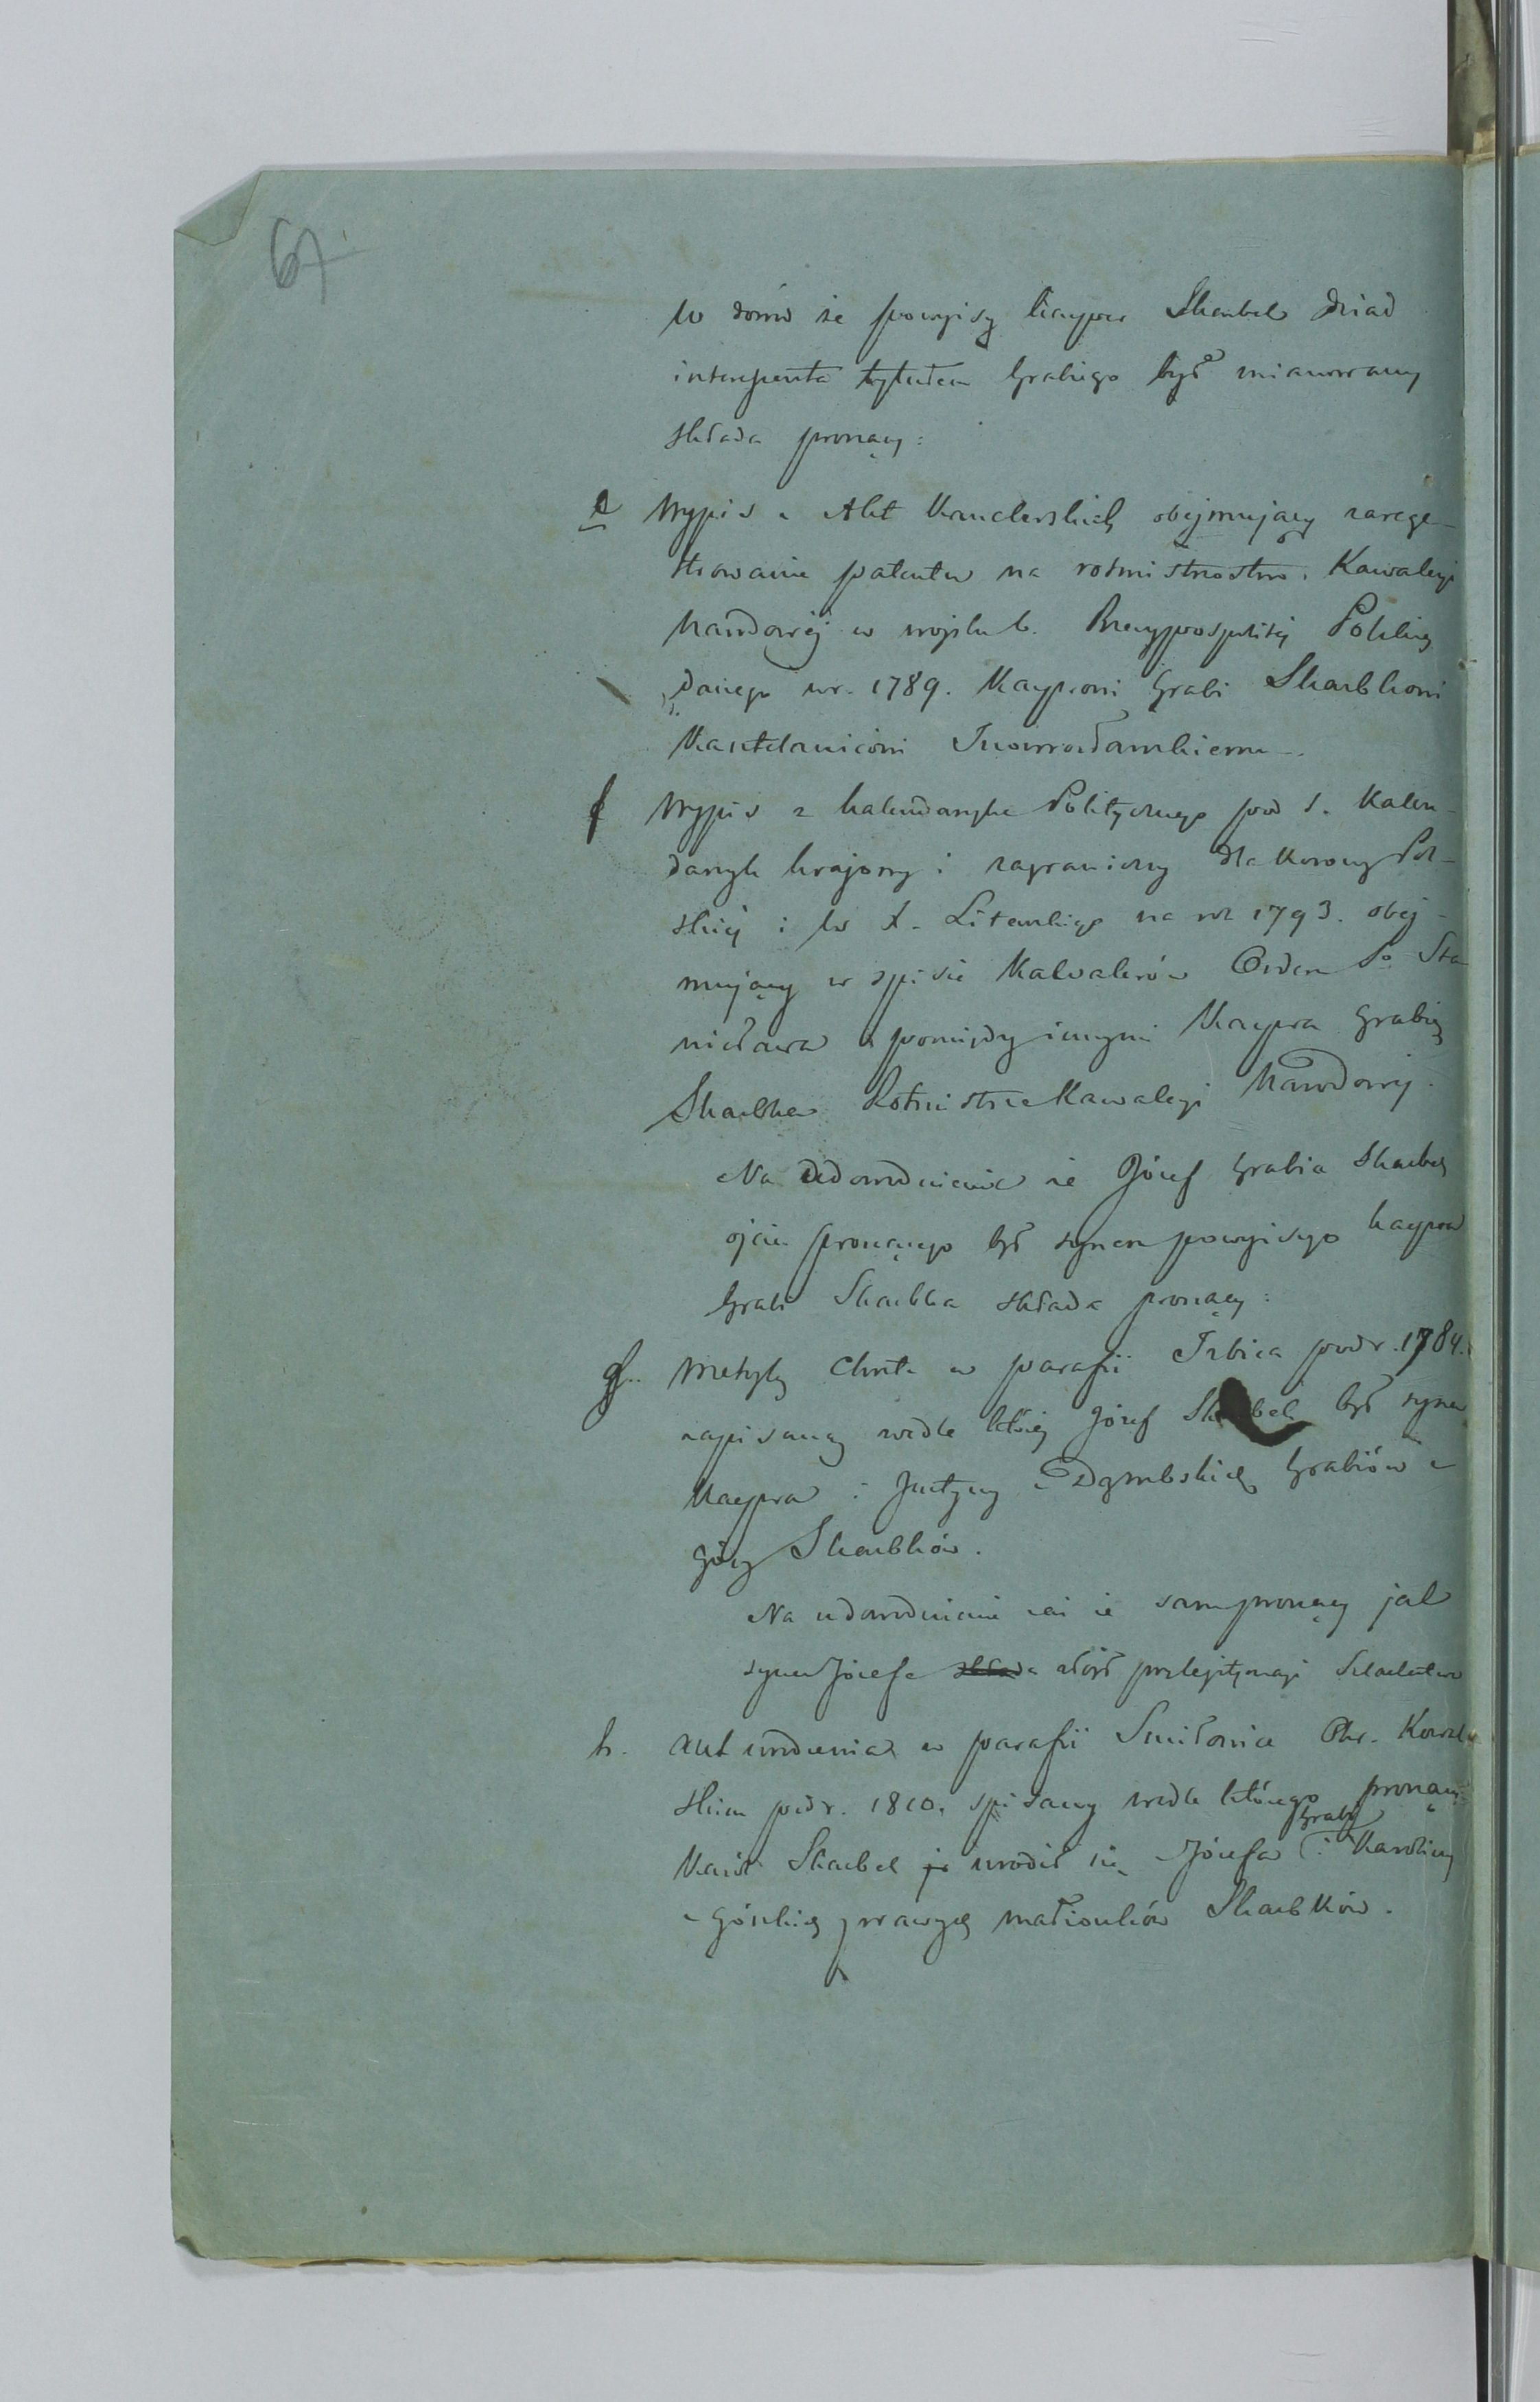 67
W dowód że powyższy Kacper Skarbek dziad
interesenta tytułem Grabiego był mianowany
składa proszący:
e Wypis z Akt Kanclerskich obejmujący zarege-
strowanie patentu na rotmistrzostwo Kawaleryi
Narodowéj w wojsku b. Rzeczypospolitéj Polskiéj
danego w r. 1789. Kacprowi Grabi Skarbkowi
Kasztelanicowi Inowrocławskiemu.
f Wypis z kalendarzyka Politycznego pod t. Kalen-
darzyk krajowy i zagraniczny dla Korony Pol-
skiéj i W X. Litewskiego na rok 1793. obej-
mujący w spisie Kawalerów Orderu Sgo Sta
nisława pomiędzy innymi Kacpra Grabię
Skarbka Rotmistrza Kawaleryi Narodowéj.
Na udowodnienie że Józef Grabia Skarbek
ojciec proszącego był synem powyższego Kacpra
Grabi Skarbka składa proszący:
g. Metrykę Chrztu w parafii Izbica pod r. 1784.
zapisaną wedle któréj Józef Skarbek był synem
Kacpra i Justyny z Dąmbskich Grabiów z
Góry Skarbków.
Na udowodnienie zaś że sam proszący jak
syn Józefa składa złożył przy legitymacyi Szlachectwa
h. Akt urodzenia w parafii Smiłowice Okr. Kowal
skim pod r. 1810. spisany wedle którego proszący
Karól Skarbek urodził się z Józefa Grabi i Karoliny
z Górskich prawych małżonków Skarbków.